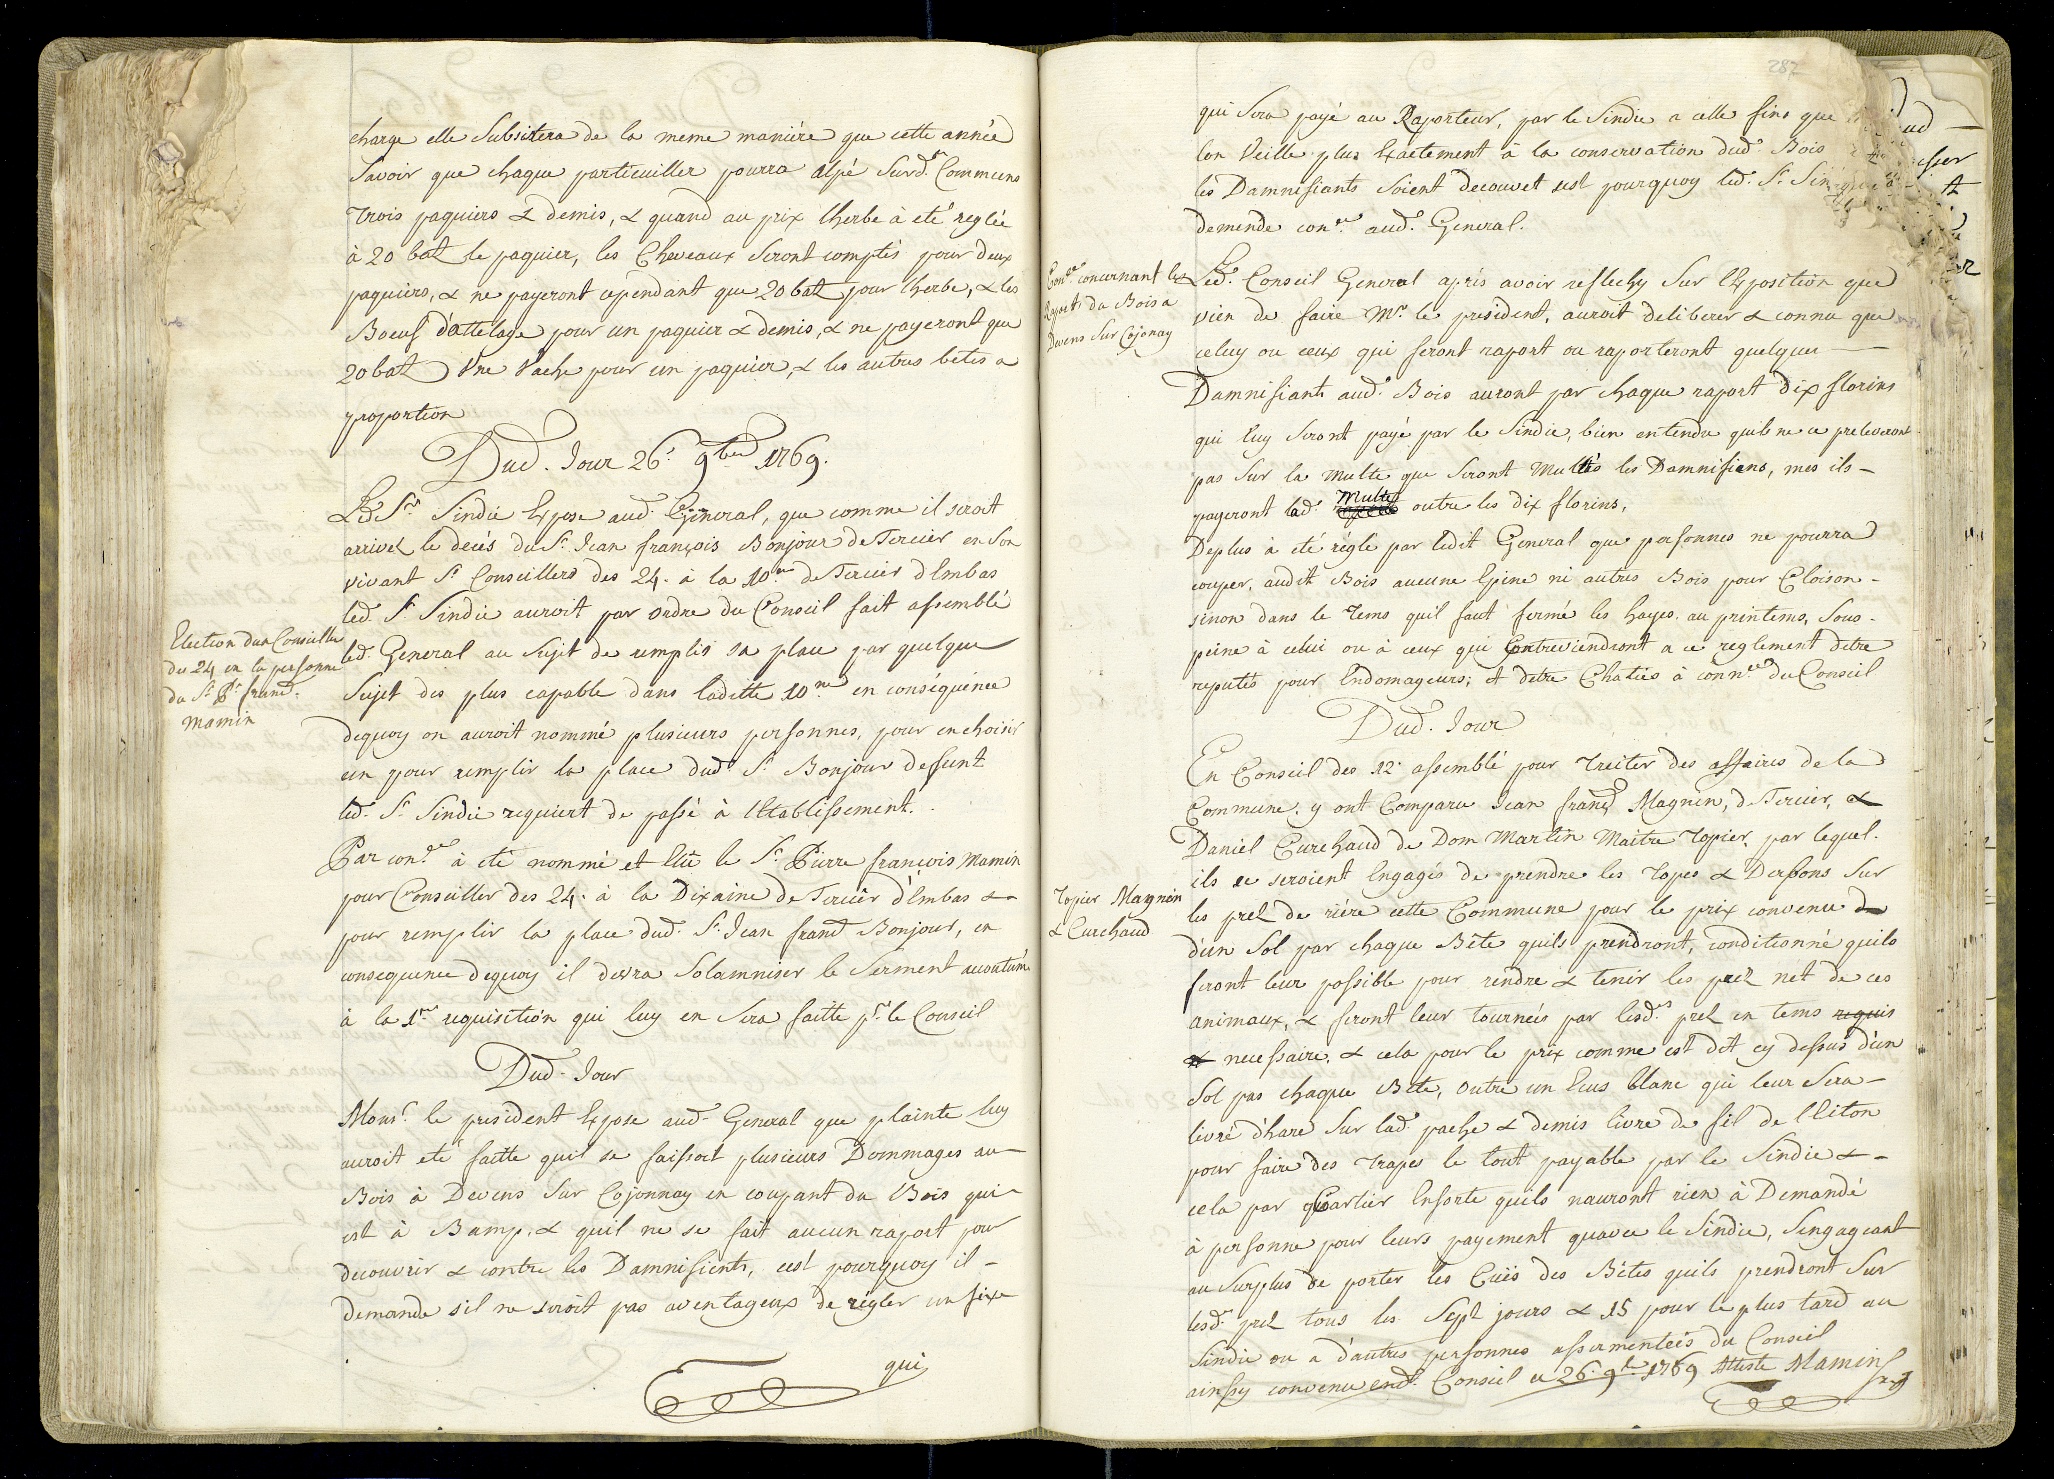 charge elle Subsitera de la meme maniére que cette année
Savoir que chaque particuiller pourra alpé Surd.ts Communs
Trois paquiers & demis, & quand au prix lherbe à eté reglée
à 20 batz le paquier, les Cheveaux Seront comptés pour deux
paquiers, & ne payeront cependant que 20 batz pour lherbe, & les
Boeuf d'attelage pour un paquier & demis, & ne payeront que
20 batz Vne Vache pour un paquier, & les autres betes a
proportion
Dud. Jour 26.e 9bre 1769.
Led. Sr. Sindic Expose aud. General, que comme il seroit
arrivez le decés du Sr. Jean françois Bonjour de Tercier en Son
vivant Sr. Conseillers des 24. à la 10.me de Tercier d'Embas
led. Sr. Sindic auroit par ordre du Conseil fait assemblé
led. General au Sujet de remplir sa place par quelque
Sujet des plus capable dans laditte 10.me en conséquence
dequoy on auroit nommé plusieurs personnes, pour en choisir
un pour remplir la place dud. Sr. Bonjour deffunt
led. Sr. Sindic requiert de passé à l'Etablissement.
Election dun Conseiller
du 24 en la personne
du Sr. Pre. franc.
Mamin
Par con.ce à eté nommé et Elû le Sr. Pierre françois Mamin
pour Conseiller des 24. à la Dixaine de Tercier d'Embas &
pour remplir la place dud. Sr. Jean franc. Bonjour, en
consequence dequoy il devra Solamniser le Serment acoutumé
à la 1.re requisition qui luy en Sera faitte pr. le Conseil
Dud. Jour
Monsr. le president Expose aud. General que plainte luy
auroit eté faitte quil se faissoit plusieurs Dommages au
Bois à Devens Sur Cojonnay en coupant du Bois qui
est à Bamp, & quil ne se fait aucun raport pour
decouvrir & contre les Damnifients, cest pourquoy il
demande s'il ne seroit pas aventageux de régler un fixe
qui
287
qui Sera payé au Raporteur, par le Sindic a celle fins que
lon Veille plus Exactement à la conservation dud. Bois
les Damnifiants Soient decouvet est pourquoy led. Sr.
demende con.ce aud. General.
Con.ce concernant les
Raports du Bois a
Devens Sur Cojonay
Led. Conseil General aprés avoir reflechy Sur l'Exposition que
vien de faire Mr. le president, auroit deliberer & connu que
celuy ou ceux qui feront raport ou raporteront quelques
Damnifiants aud. Bois auront par chaque raport dix florins
qui luy Seront payé par le Sindic, bien entendu quils ne ce preleveront
pas Sur la Multe que Seront Multés les Damnifiens, mes ils
payeront lad. Multe outre les dix florins,
Deplus à eté réglé par ledit General que personnes ne pourra
couper, audit Bois aucune Epine ni autres Bois pour Cloison
sinon dans le Tems quil faut fermé les hayes au printems, Sous
peine à celui ou à ceux qui Contreviendront a ce reglement detre
reputés pour Endomageurs; et detre Chatiés à conn.ce du Conseil
Dud. Jour
En Conseil des 12. assemblé pour Treiter des affaires de la
Commune. y ont Comparu Jean franç. Magnin, de Tercier, &
Daniel Curchaud de Dom Martin Maitre Topier, par lequel.
ils se seroient Engagés de prendre les Topes & Derbons Sur
les prez de riére cette Commune pour le prix convenu de
d'un Sol par chaque Bête quils prendront, conditionné quils
feront leur possible pour rendre & tenir les prez net de ces
animaux, & feront leur tournées par lesd.ts prez en tems requis
& necessaire. & cela pour le prix comme est dit cy dessus d'un
Sol pas chaque Bête, outre un Ecus blanc qui leur Sera
Topier Magnin
& Curchaud
livré dhare Sur lad. pache & demis livre de fil de l'Eiton
pour faire des Trapes le tout payable par le Sindic &
cela par qCartier Ensorte quils nauront rien à Demandé
à personne pour leurs payement quavec le Sindic, Sengageant
au Surplus de porter les Cuës des Bêtes quils prendront Sur
lesd.ts prez tous les Sept jours & 15 pour le plus tard au
Sindic ou a d'autres personnes assermentées du Conseil
ainsy convenu end. Conseil ce 26.e 9.bre 1769 Atteste Mamin